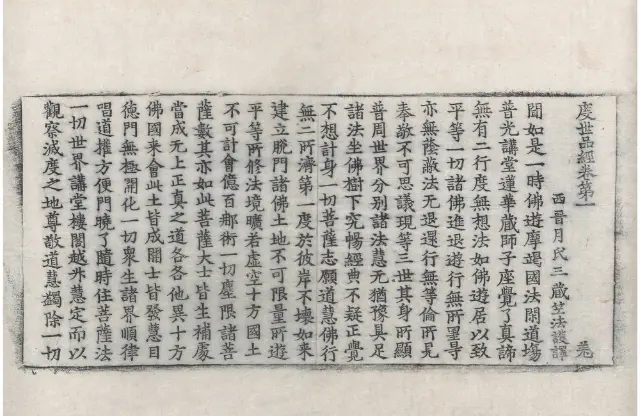 度世品經卷第一
西晉月氏三藏竺法護譯
聞如是一時佛遊摩竭國法閑道場
普光講堂蓮華藏師子座覺了真諦
無有二行度無想法如佛遊居以致
平等一切諸佛進退遊行無所罣导
亦無蔭蔽法无退還行無等倫所見
奉敬不可思議現等三世其身所顯
普周世界分別諸法慧无猶豫具足
諸法坐佛樹下究暢經典不疑正覺
不想計身一切菩薩志願道慧佛行
無二所濟第一度於彼岸不壞如来
建立脫門諸佛土地不可限量所遊
平等所修法境曠若虛空十方國土
不可計會億百那術一切塵限諸菩
薩數其亦如此菩薩大士皆生補處
當成无上正真之道各各他異十方
佛國来會此土皆成開士皆發慧目
德門無極開化一切衆生諸界順律
唱道權方便門曉了隨時住菩薩法
一切世界講堂樓閣越外慧定而以
觀察滅度之地尊敬道慧蠲除一切